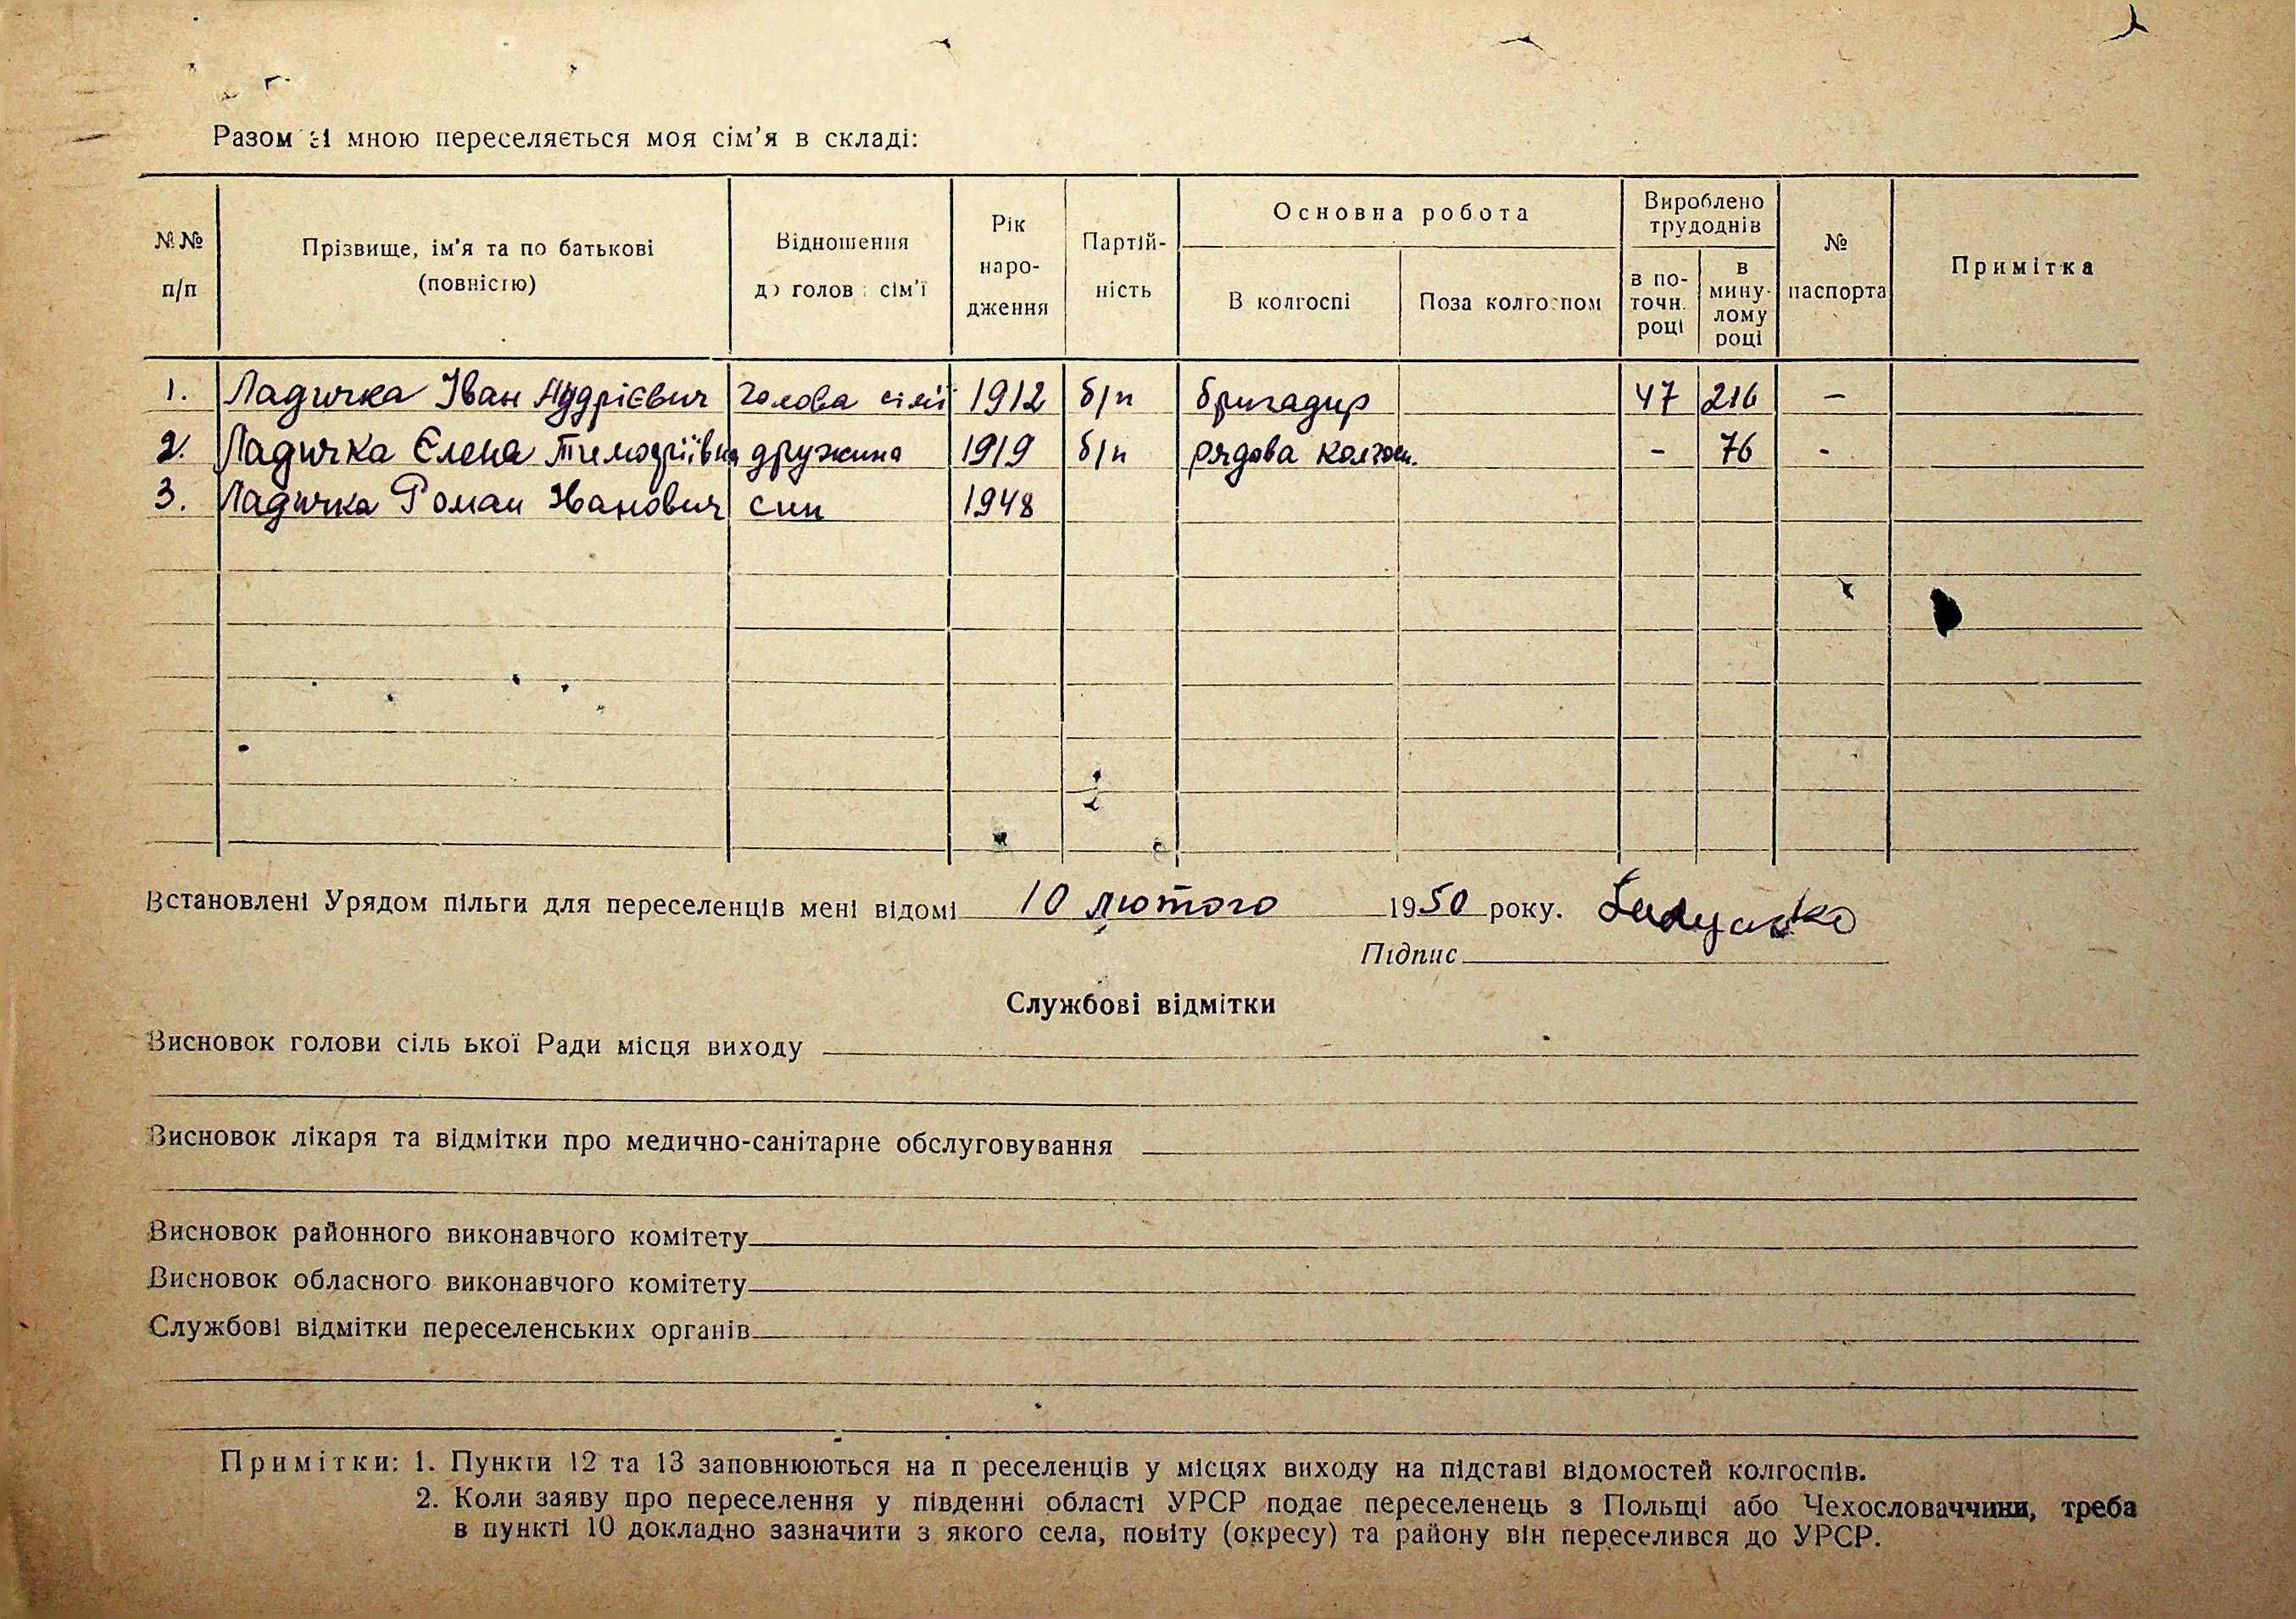 Разом зі мною переселяється моя сім’я в складі:
№№ п/п | Прізвище, ім’я та по батькові (повністю) | Відношення до голови сім’ї | Рік народження | Партійність | Основна робота | Вироблено трудоднів | № паспорта | Примітка
В колгоспі | Поза колгоспом | в поточн. році | в минулому році
1. Ладичка Іван Андрієвич голова сімї 1912 б/п бригадир 47 216 –
2. Ладичка Єлена дружина 1919 б/п рядова колгосп. – 76 -
3. Ладичка Роман Іванович син 1948
Встановлені Урядом пільги для переселенців мені відомі 10 лютого 1950 року.
Підпис
Службові відмітки
Висновок голови сільської Ради місця виходу
Висновок лікаря та відмітки про медично-санітарне обслуговування
Висновок районного виконавчого комітету
Висновок обласного виконавчого комітету
Службові відмітки переселенських органів
Примітки: 1. Пункти 12 та 13 заповнюються на переселенців у місцях виходу на підставі відомостей колгоспів.
2. Коли заяву про переселення у південні області УРСР подає переселенець з Польщі або Чехословаччини, треба
в пункті 10 докладно зазначити з якого села, повіту (окресу) та району він переселився до УРСР.